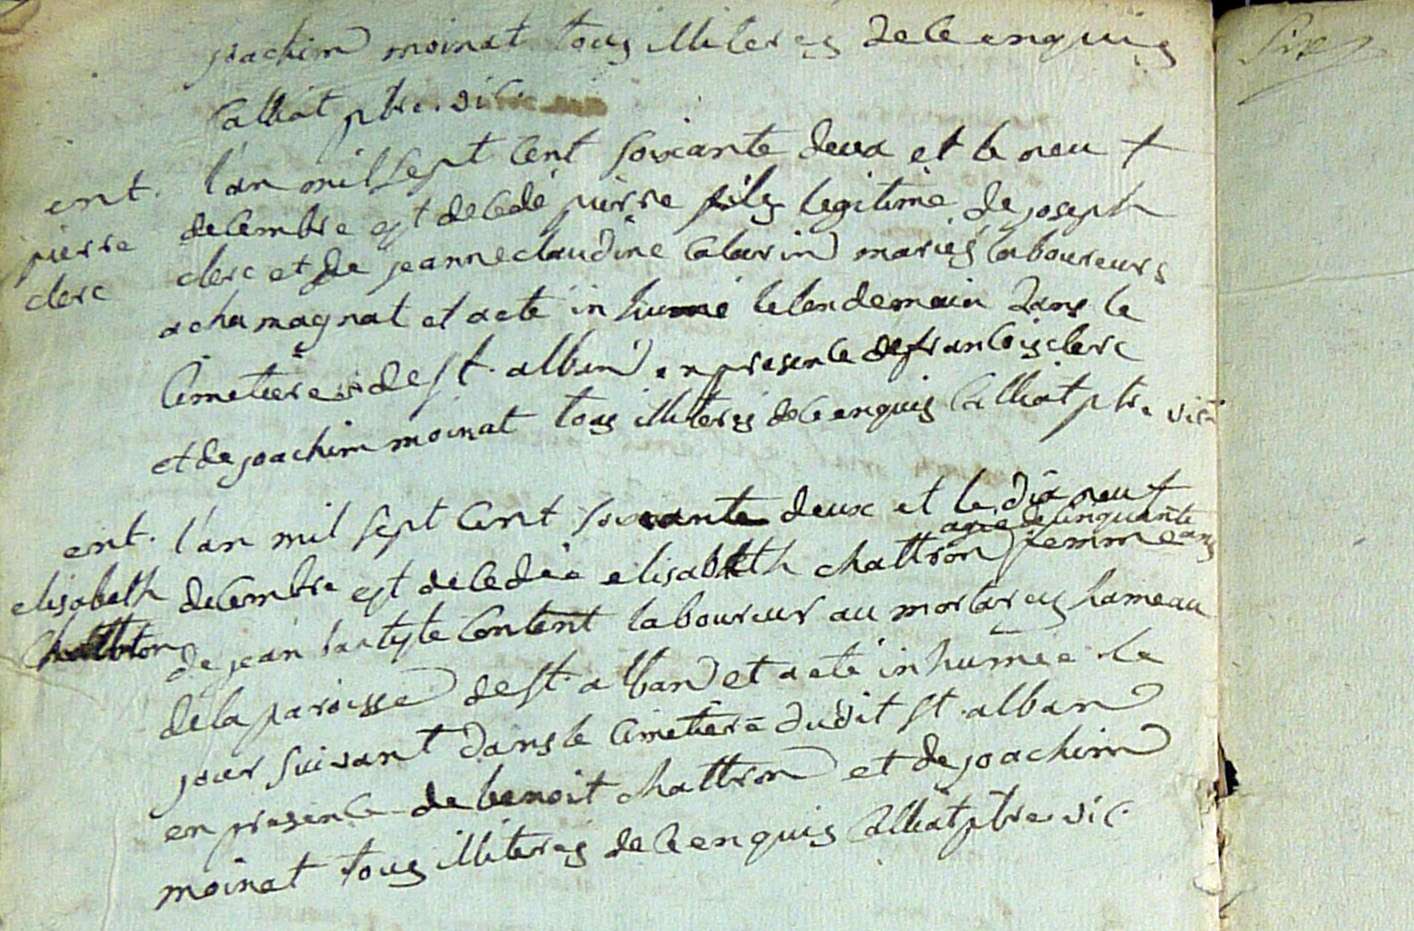 joachim moinat tous illiteres de ce enquis
Calliat ptre. vic.
ent. l'an mil sept cent soixante deux et le neuf
pierre decembre est decedé pierre fils legitime de joseph
clerc clerc et de jeanne claudine Calarin mariés laboureurs
a chamagnat et a eté inhumé le lendemain dans le
Cimetiere de st. alban en presence de francois clerc
et de joachim moinat tous illiteres de ce enquis Calliat ptre vic
ent. l'an mil sept cent soixante deux et le dix neuf
agée de cinquante ans
elisabeth decembre est decedée elisabeth chattron femme
Chattron de jean baptiste Content laboureur au mortarey hameau
de la paroisse de st. alban et a eté inhumée le
jour suivant dans le Cimetiere dudit st. alban
en presence de benoit chattron et de joachim
moinat tous illiteres de ce enquis Calliat ptre vic.
Six